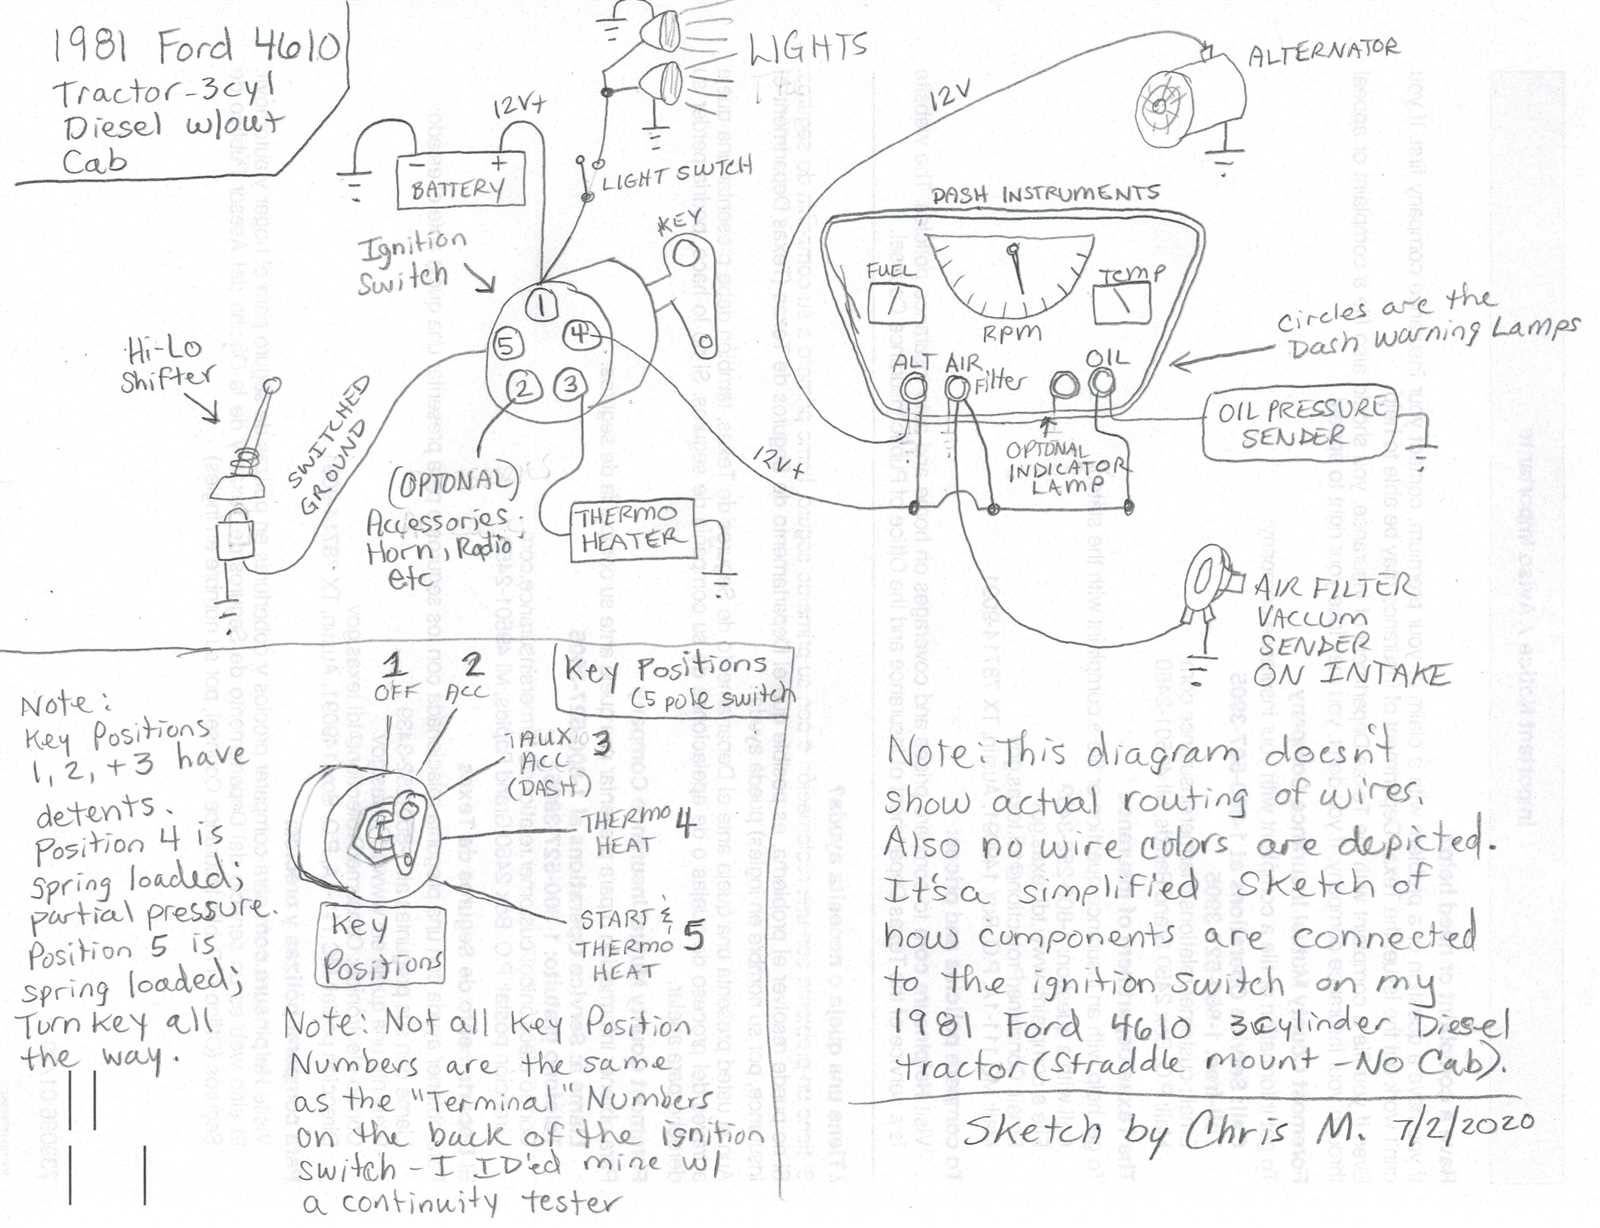 1981 Ford 4610
Tractor-3cyl
Diesel w/out
Cab
LIGHTS
12V+
- +
BATTERY
LIGHT SWTCH
Ignition
Switch
KEY
1
5 4
2 3
Hi-Lo
Shifter
SWITCHED
GROUND
(OPTIONAL)
Accessories:
Horn, Radio
etc
THERMO
HEATER
12V+
12V
ALTERNATOR
DASH INSTRUMENTS
FUEL
RPM
Temp
ALT AIR
Filter
OIL
OPTONAL
INDICATOR
LAMP
Circles are the
Dash Warning Lamps
OIL PRESSURE
SENDER
AIR FILTER
VACCUM
SENDER
ON INTAKE
Key Positions
(5 pole switch
1
OFF
2
ACC
AUX 3
ACC
(DASH)
THERMO 4
HEAT
START &
THERMO 5
HEAT
Key
Positions
Note:
Key Positions
1, 2, + 3 have
detents.
Position 4 is
spring loaded;
partial pressure.
Position 5 is
spring loaded;
Turn key all
the way.
Note: Not all Key Position
Numbers are the same
as the "Terminal" Numbers
on the back of the ignition
switch - I ID'ed mine w/
a continuity tester
Note: This diagram doesn't
show actual routing of wires.
Also no wire colors are depicted.
It's a simplified sketch of
how components are connected
to the ignition switch on my
1981 Ford 4610 3cylinder Diesel
tractor (Straddle mount - No Cab).
Sketch by Chris M. 7/2/2020